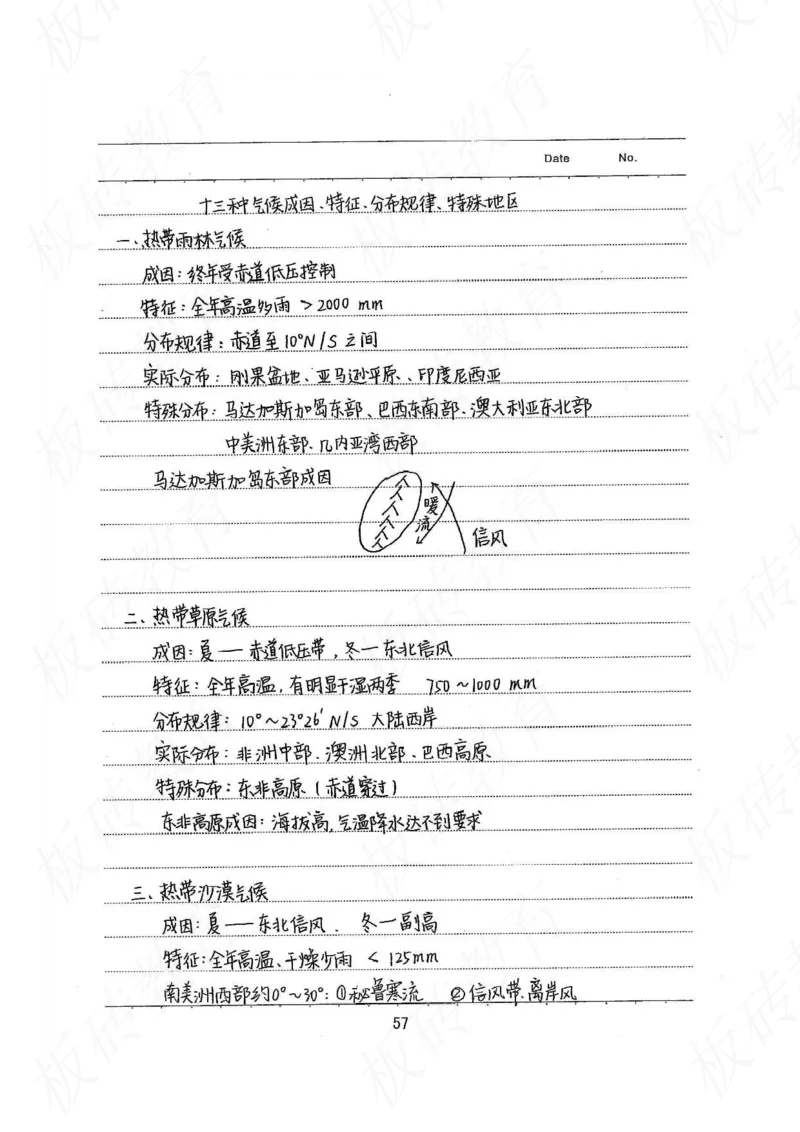 Date No.
十三种气候成因、特征、分布规律、特殊地区
一、热带雨林气候
成因：终年受赤道低压控制
特征：全年高温多雨 > 2000 mm
分布规律：赤道至10°N/S之间
实际分布：刚果盆地、亚马逊平原、印度尼西亚
特殊分布：马达加斯加岛东部、巴西东南部、澳大利亚东北部
中美洲东部、几内亚湾西部
马达加斯加岛东部成因
暖流
信风
二、热带草原气候
成因：夏——赤道低压带，冬—东北信风
特征：全年高温，有明显干湿两季 750～1000 mm
分布规律：10°～23°26′N/S 大陆西岸
实际分布：非洲中部、澳洲北部、巴西高原
特殊分布：东非高原（赤道穿过）
东非高原成因：海拔高，气温降水达不到要求
三、热带沙漠气候
成因：夏——东北信风． 冬—副高
特征：全年高温、干燥少雨 < 125mm
南美洲西部约0°～30°：①秘鲁寒流 ②信风带、离岸风
57
板砖教育